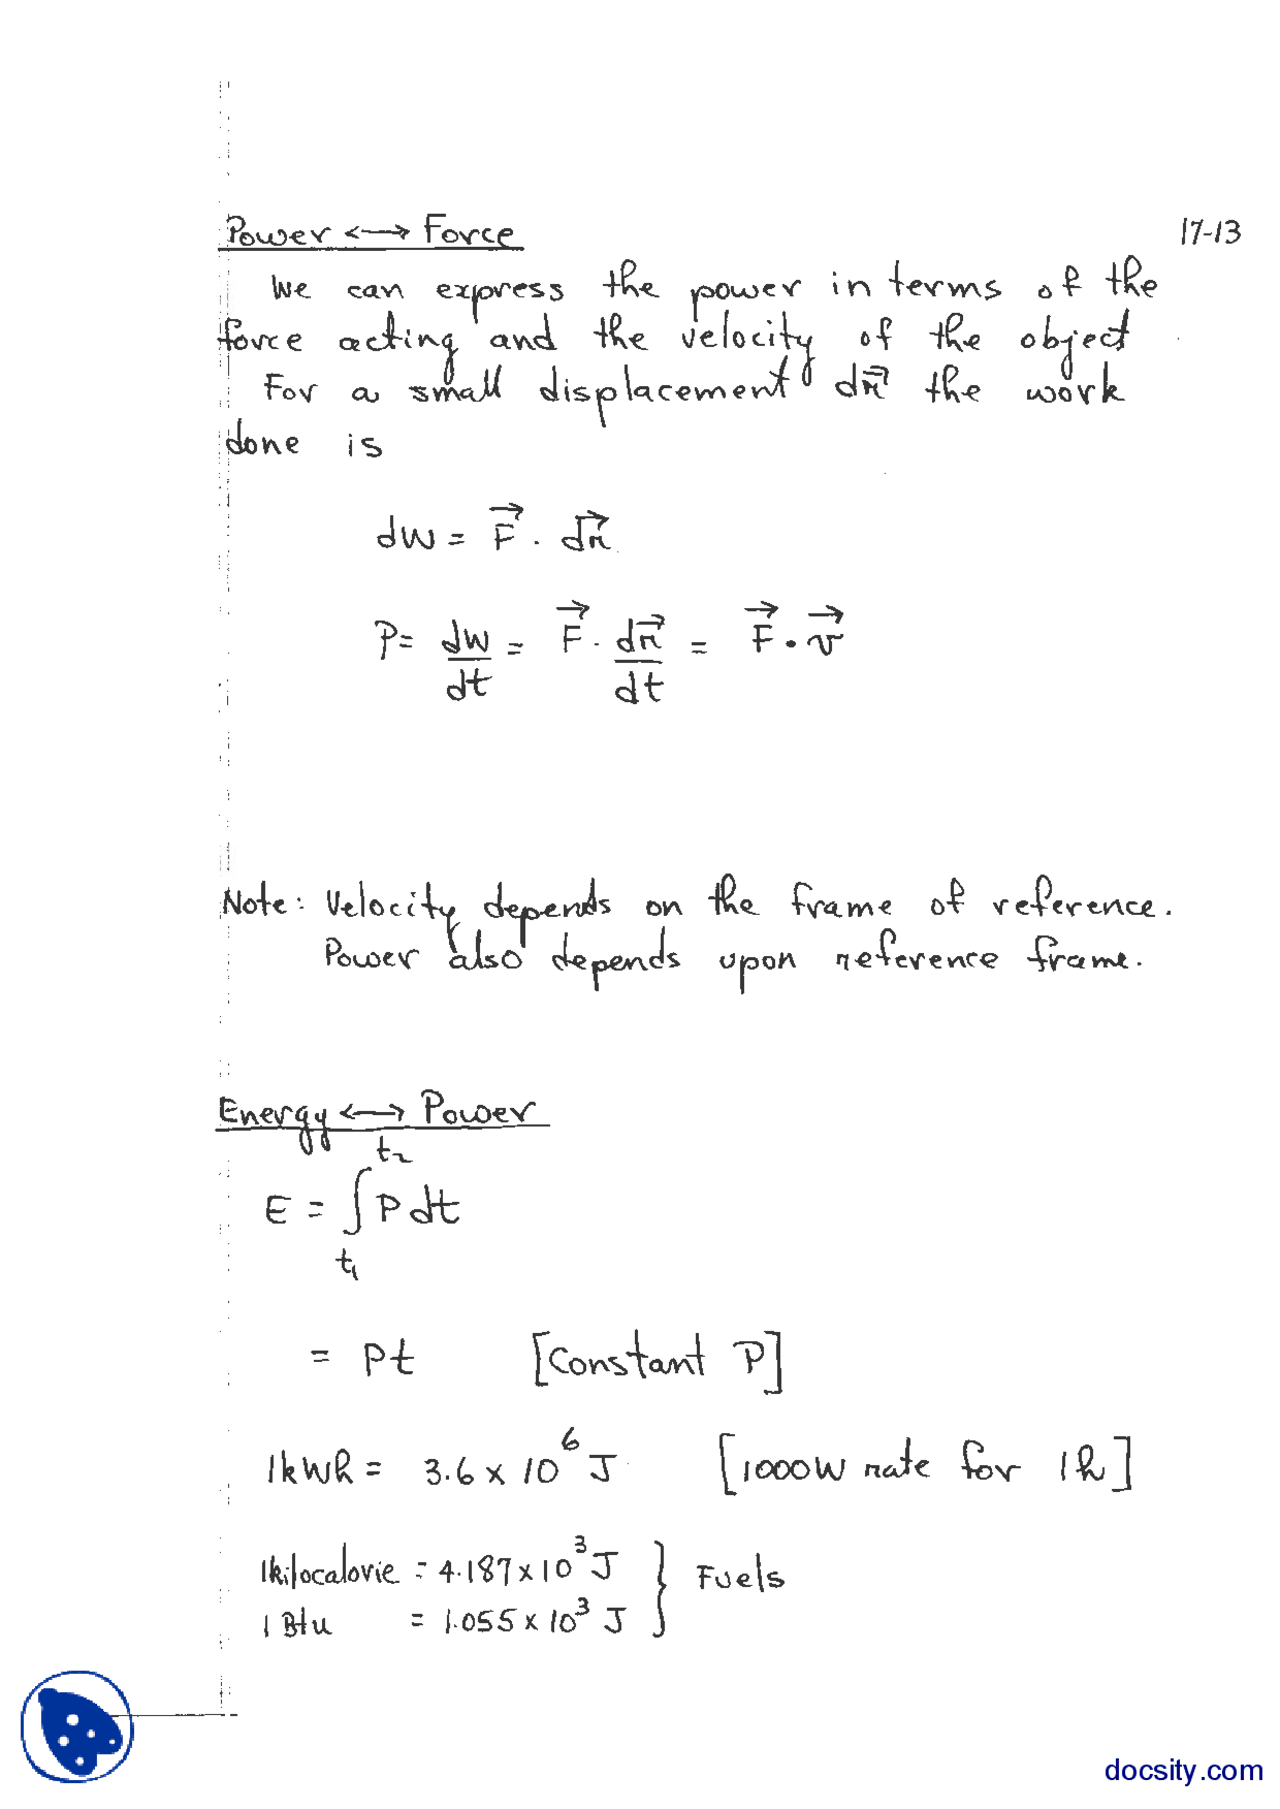 Power ⟷ Force 17-13
We can express the power in terms of the
force acting and the velocity of the object
For a small displacement dr⃗ the work
done is
dW = F⃗ · dr⃗
P = dW/dt = F⃗ · dr⃗/dt = F⃗ · v⃗
Note: Velocity depends on the frame of reference.
Power also depends upon reference frame.
Energy ⟷ Power
E = ∫_{t₁}^{t₂} P dt
= Pt [Constant P]
1kWh = 3.6 × 10⁶ J [1000W rate for 1h]
1kilocalorie = 4.187 × 10³ J } Fuels
1 Btu = 1.055 × 10³ J
docsity.com